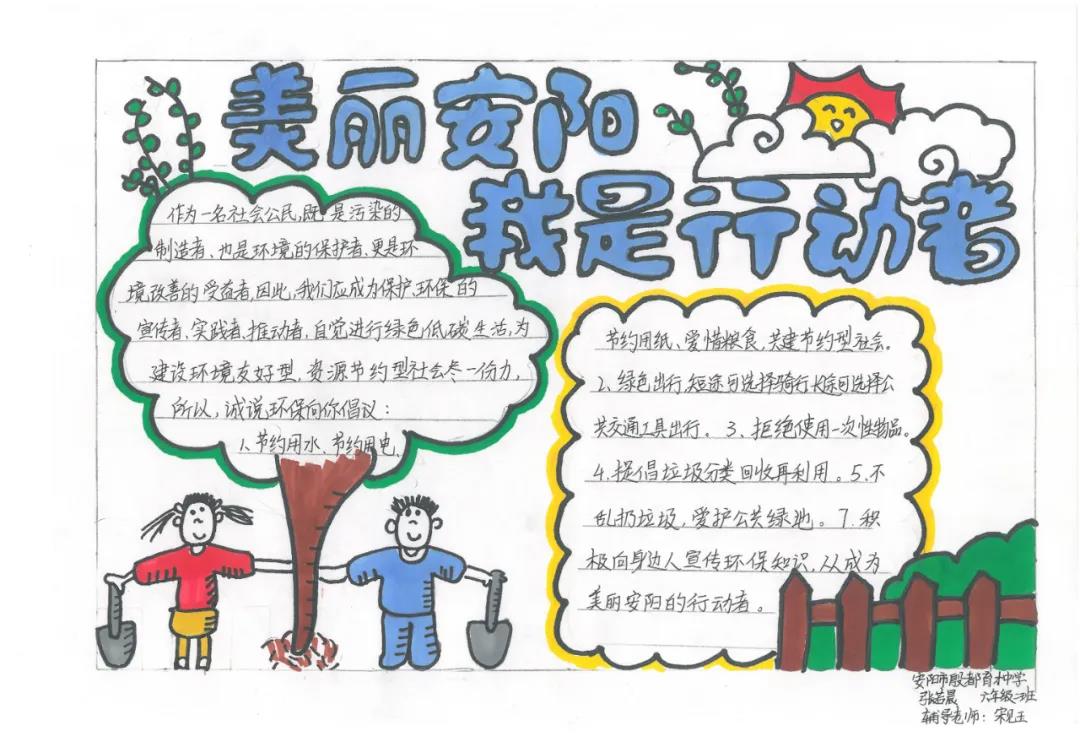 美丽安阳
我是行动者
作为一名社会公民,既是污染的
制造者、也是环境的保护者、更是环
境改善的受益者,因此,我们应成为保护、环保的
宣传者、实践者、推动者,自觉进行绿色低碳生活,为
建设环境友好型,资源节约型社会尽一份力,
所以,诚说环保向你倡议:
1、节约用水、节约用电、
节约用纸、爱惜粮食,共建节约型社会。
2、绿色出行,短途可选择骑行长途可选择公
共交通工具出行。3、拒绝使用一次性物品。
4.提倡垃圾分类回收再利用。5.不
乱扔垃圾,爱护公共绿地。7.积
极向身边人宣传环保知识,从成为
美丽安阳的行动者。
安阳市殷都育才中学
张若晨 六年级二班
辅导老师:宋见玉